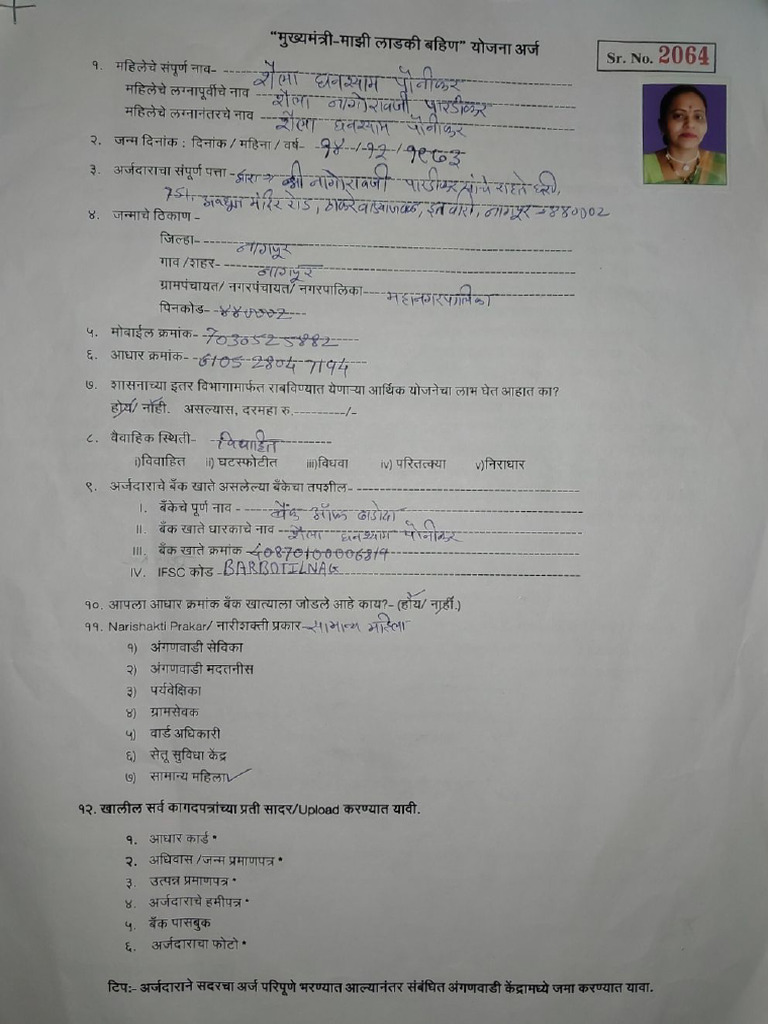 "मुख्यमंत्री-माझी लाडकी बहिण" योजना अर्ज
Sr. No. 2064
१. महिलेचे संपूर्ण नाव- शैला घनश्याम पौनीकर
महिलेचे लग्नापूर्वीचे नाव शैला नागोरावजी पारडीकर
महिलेचे लग्नानंतरचे नाव शैला घनश्याम पौनीकर
२. जन्म दिनांक : दिनांक / महिना / वर्ष- १४/१२/१९७३
३. अर्जदाराचा संपूर्ण पत्ता- श्री नागोरावजी पारडीकर यांचे राहते घरी,
751, मंदिर रोड, इतवारी, नागपूर-440002
४. जन्माचे ठिकाण -
जिल्हा- नागपूर
गाव /शहर- नागपूर
ग्रामपंचायत/ नगरपंचायत/ नगरपालिका- महानगरपालिका
पिनकोड- ४४०००२
५. मोबाईल क्रमांक- 7030525882
६. आधार क्रमांक- 6105 2804 7194
७. शासनाच्या इतर विभागामार्फत राबविण्यात येणाऱ्या आर्थिक योजनेचा लाभ घेत आहात का?
होय/ नाही. असल्यास, दरमहा रु.----------/-
८. वैवाहिक स्थिती- विवाहित
i)विवाहित ii) घटस्फोटीत iii)विधवा iv) परितत्क्या v)निराधार
९. अर्जदाराचे बँक खाते असलेल्या बँकेचा तपशील -
I. बँकेचे पूर्ण नाव - बैंक ऑफ बडोदा
II. बँक खाते धारकाचे नाव - शैला घनश्याम पौनीकर
III. बँक खाते क्रमांक - 40870100006819
IV. IFSC कोड - BARB0TILNAG
१०. आपला आधार क्रमांक बँक खात्याला जोडले आहे काय?- (होय/ नाही.)
११. Narishakti Prakar/ नारीशक्ती प्रकार- सामान्य महिला
१) अंगणवाडी सेविका
२) अंगणवाडी मदतनीस
३) पर्यवेक्षिका
४) ग्रामसेवक
५) वार्ड अधिकारी
६) सेतू सुविधा केंद्र
७) सामान्य महिला ✓
१२. खालील सर्व कागदपत्रांच्या प्रती सादर/Upload करण्यात यावी.
१. आधार कार्ड *
२. अधिवास /जन्म प्रमाणपत्र *
३. उत्पन्न प्रमाणपत्र *
४. अर्जदाराचे हमीपत्र *
५. बँक पासबुक
६. अर्जदाराचा फोटो *
टिप:- अर्जदाराने सदरचा अर्ज परिपूणे भरण्यात आल्यानंतर संबंधित अंगणवाडी केंद्रामध्ये जमा करण्यात यावा.